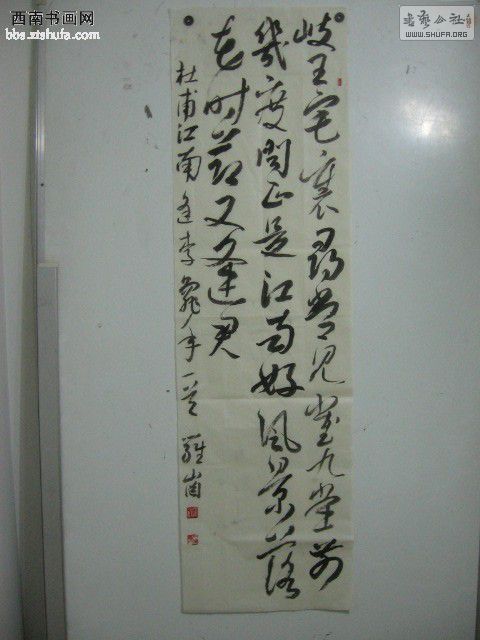 西南书画网
bbs.ztshufa.com
书艺公社
WWW.SHUFA.ORG
岐王宅裏尋常見崔九堂前
幾度聞正是江南好風景落
花時節又逢君
杜甫江南逢李龜年一首 羅崗